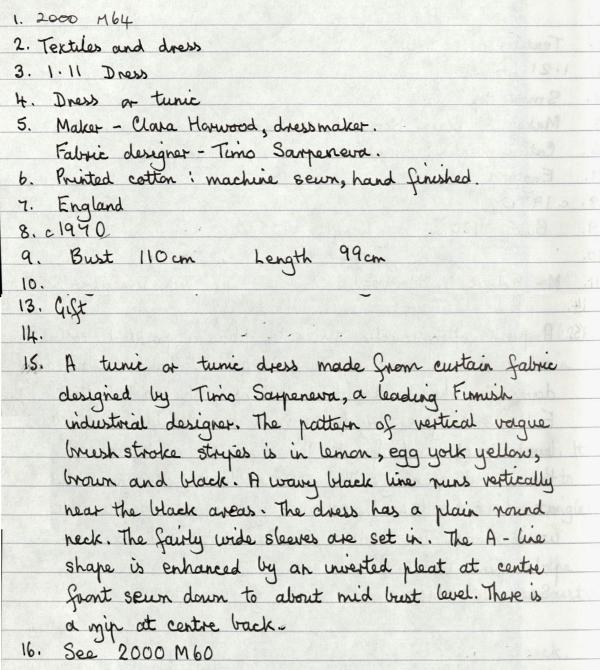 1. 2000 M64
2. Textiles and dress
3. 1.11 Dress
4. Dress or tunic
5. Maker - Clara Harwood, dressmaker.
Fabric designer - Timo Sarpeneva.
6. Printed cotton : machine sewn, hand finished.
7. England
8. c1970
9. Bust 110cm Length 99cm
10.
13. Gift
14.
15. A tunic or tunic dress made from curtain fabric
designed by Timo Sarpeneva, a leading Finnish
industrial designer. The pattern of vertical vague
brush stroke stripes is in lemon, egg yolk yellow,
brown and black. A wavy black line runs vertically
near the black areas. The dress has a plain round
neck. The fairly wide sleeves are set in. The A-line
shape is enhanced by an inverted pleat at centre
front sewn down to about mid bust level. There is
a zip at centre back.
16. See 2000 M60